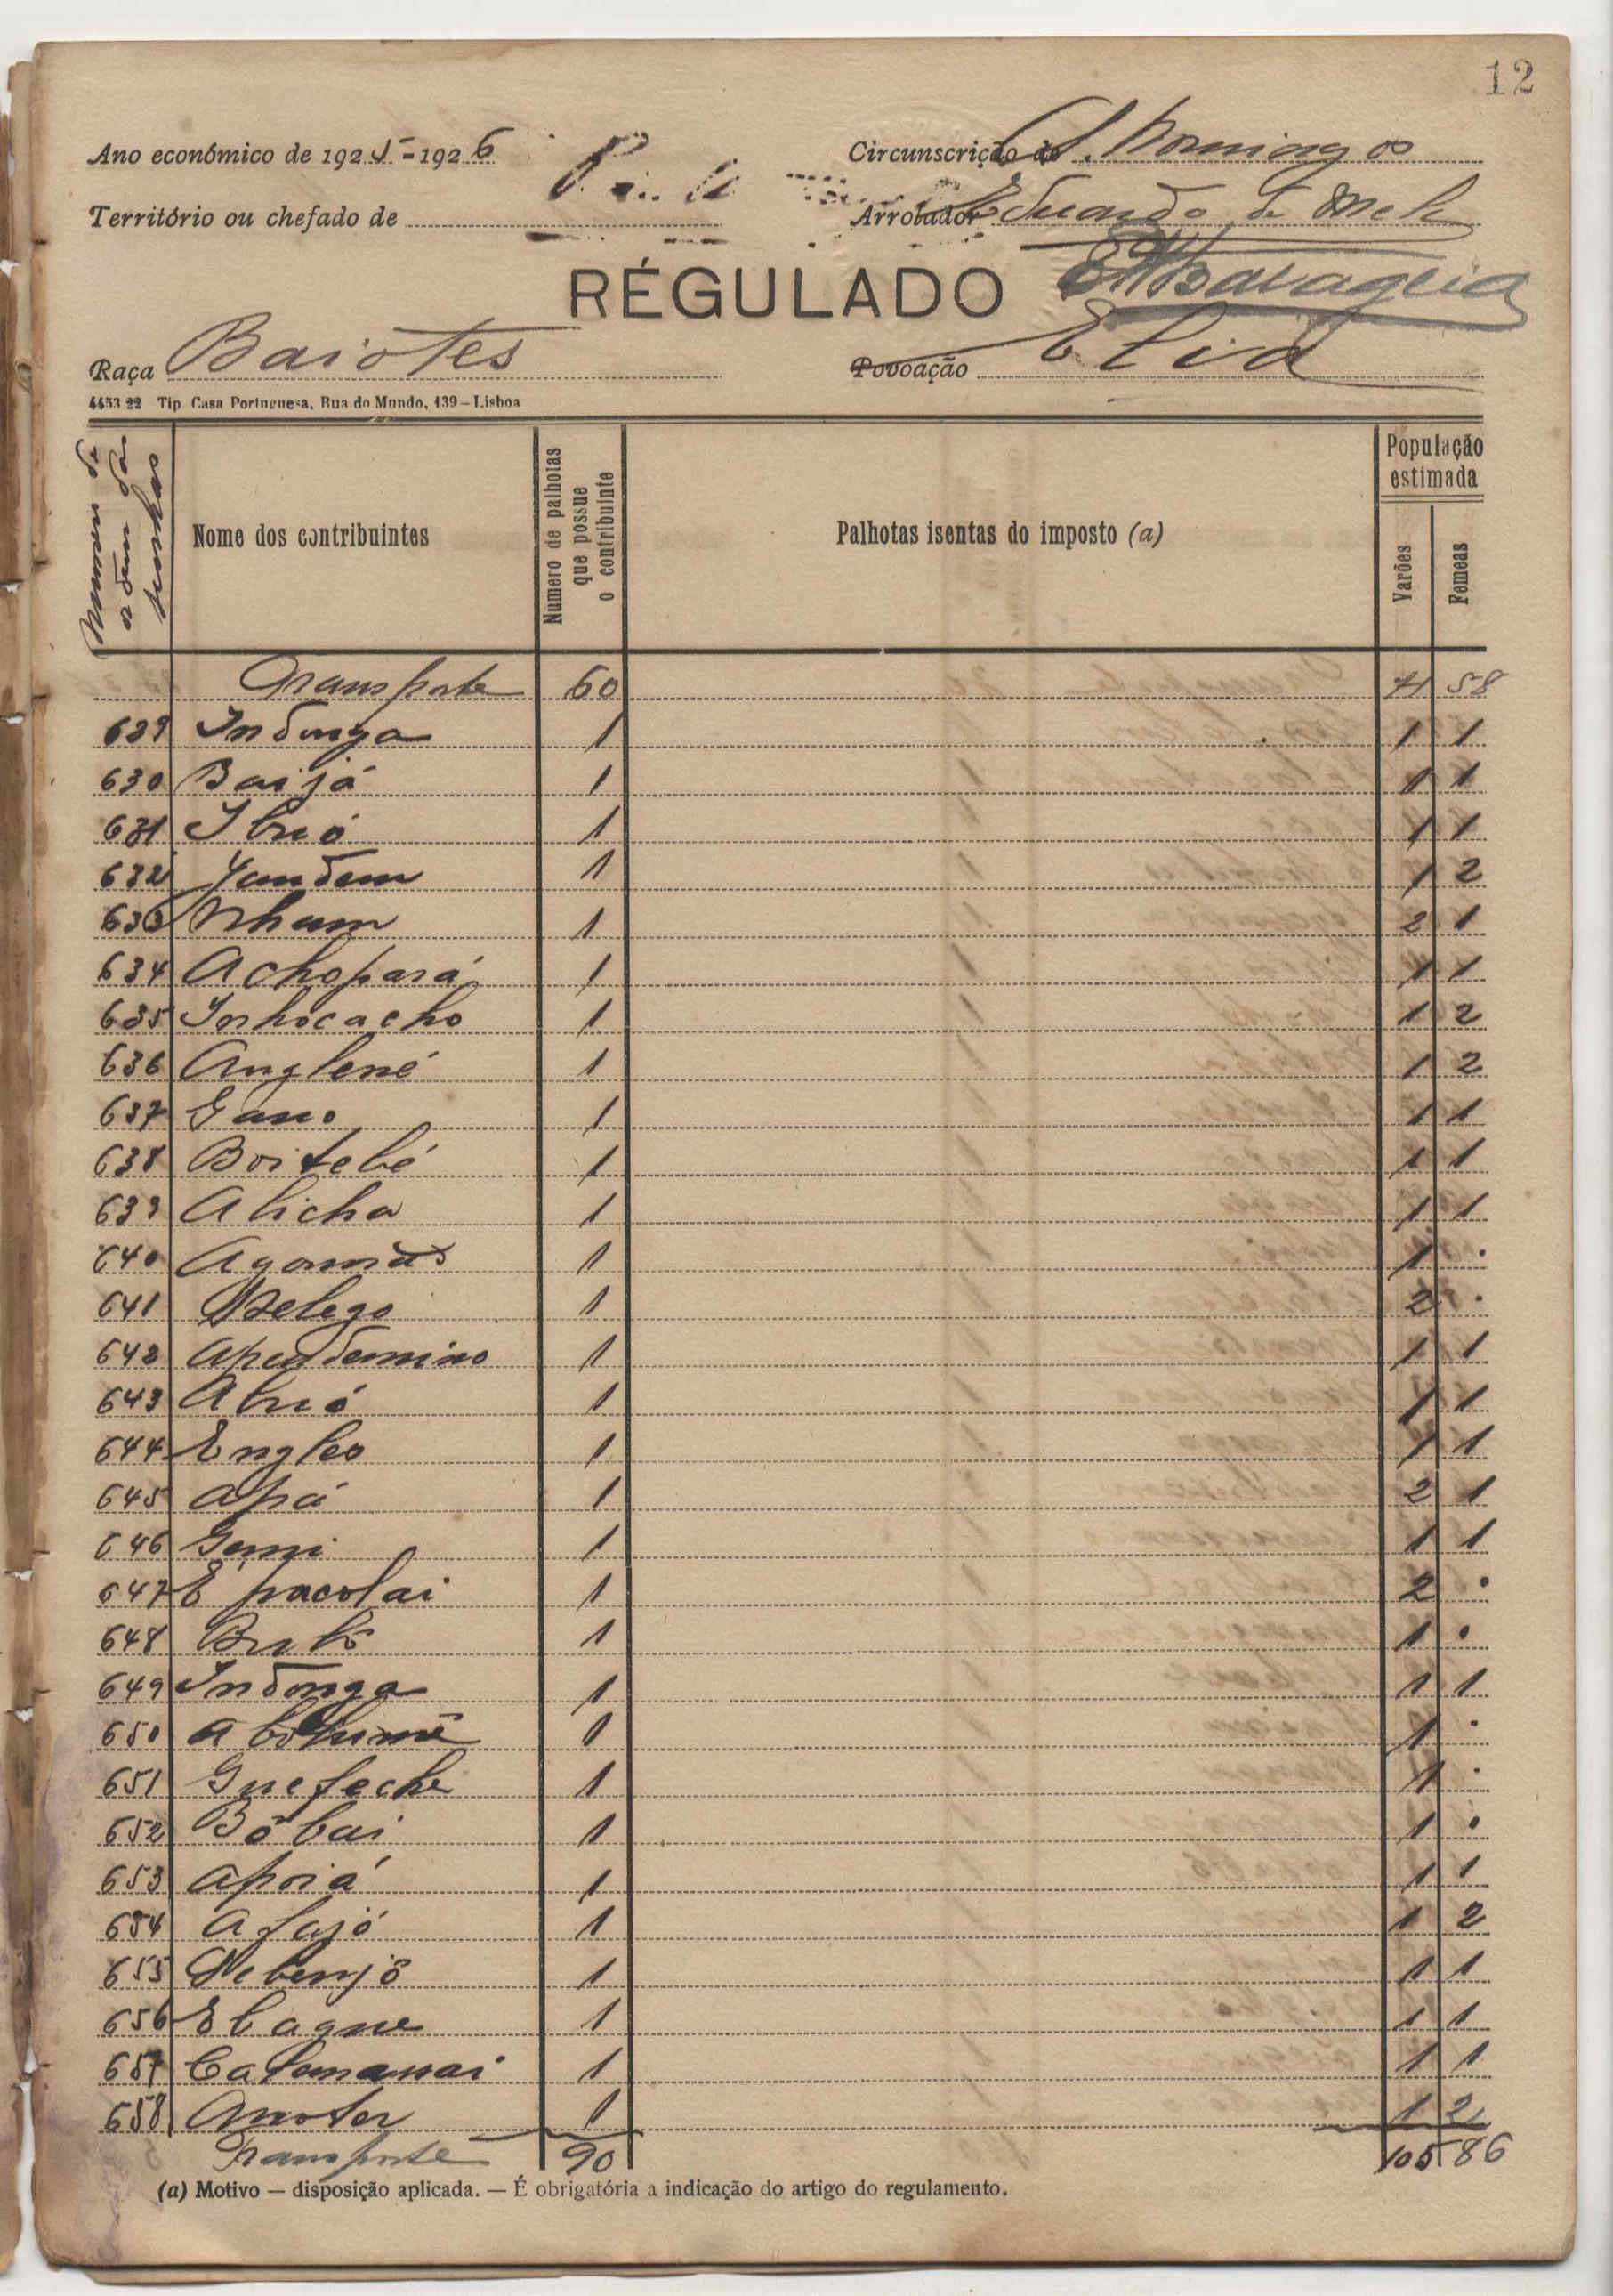 12
Ano económico de 1925-1926
Circunscrição de S. Domingos
Território ou chefado de
Arrolador Eduardo de Melo
RÉGULADO
Raça Baiotes
Povoação Elia
4453 22 Tip Casa Portuguesa, Rua do Mundo, 139-Lisboa
Numero de ordem das senhas
Nome dos contribuintes
Numero de palhotas que possue o contribuinte
Palhotas isentas do imposto (a)
População estimada
Varões
Femeas
Transporte 60 71 58
629 Indonga 1 1 1
630 Baijá 1 1 1
631 Ibrió 1 1 1
632 Jandem 1 1 2
633 Nham 1 2 1
634 Achopará 1 1 1
635 Inhocacho 1 1 2
636 Anglené 1 1 2
637 Gano 1 1 1
638 Boitebé 1 1 1
639 Alicha 1 1 1
640 1 1 .
641 1 2 .
642 1 1 1
643 Abrió 1 1 1
644 Engleo 1 1 1
645 Apá 1 2 1
646 Gemi 1 1 1
647 E pacolai 1 2 .
648 1 1 .
649 Indonga 1 1 1
650 1 1 .
651 Guefeche 1 1 .
652 Bôbai 1 1 .
653 Apoiá 1 1 1
654 Afajó 1 1 2
655 1 1 1
656 Ebagne 1 1 1
657 1 1 1
658 Anoter 1 1 2
Transporte 90 105 86
(a) Motivo — disposição aplicada. — É obrigatória a indicação do artigo do regulamento.